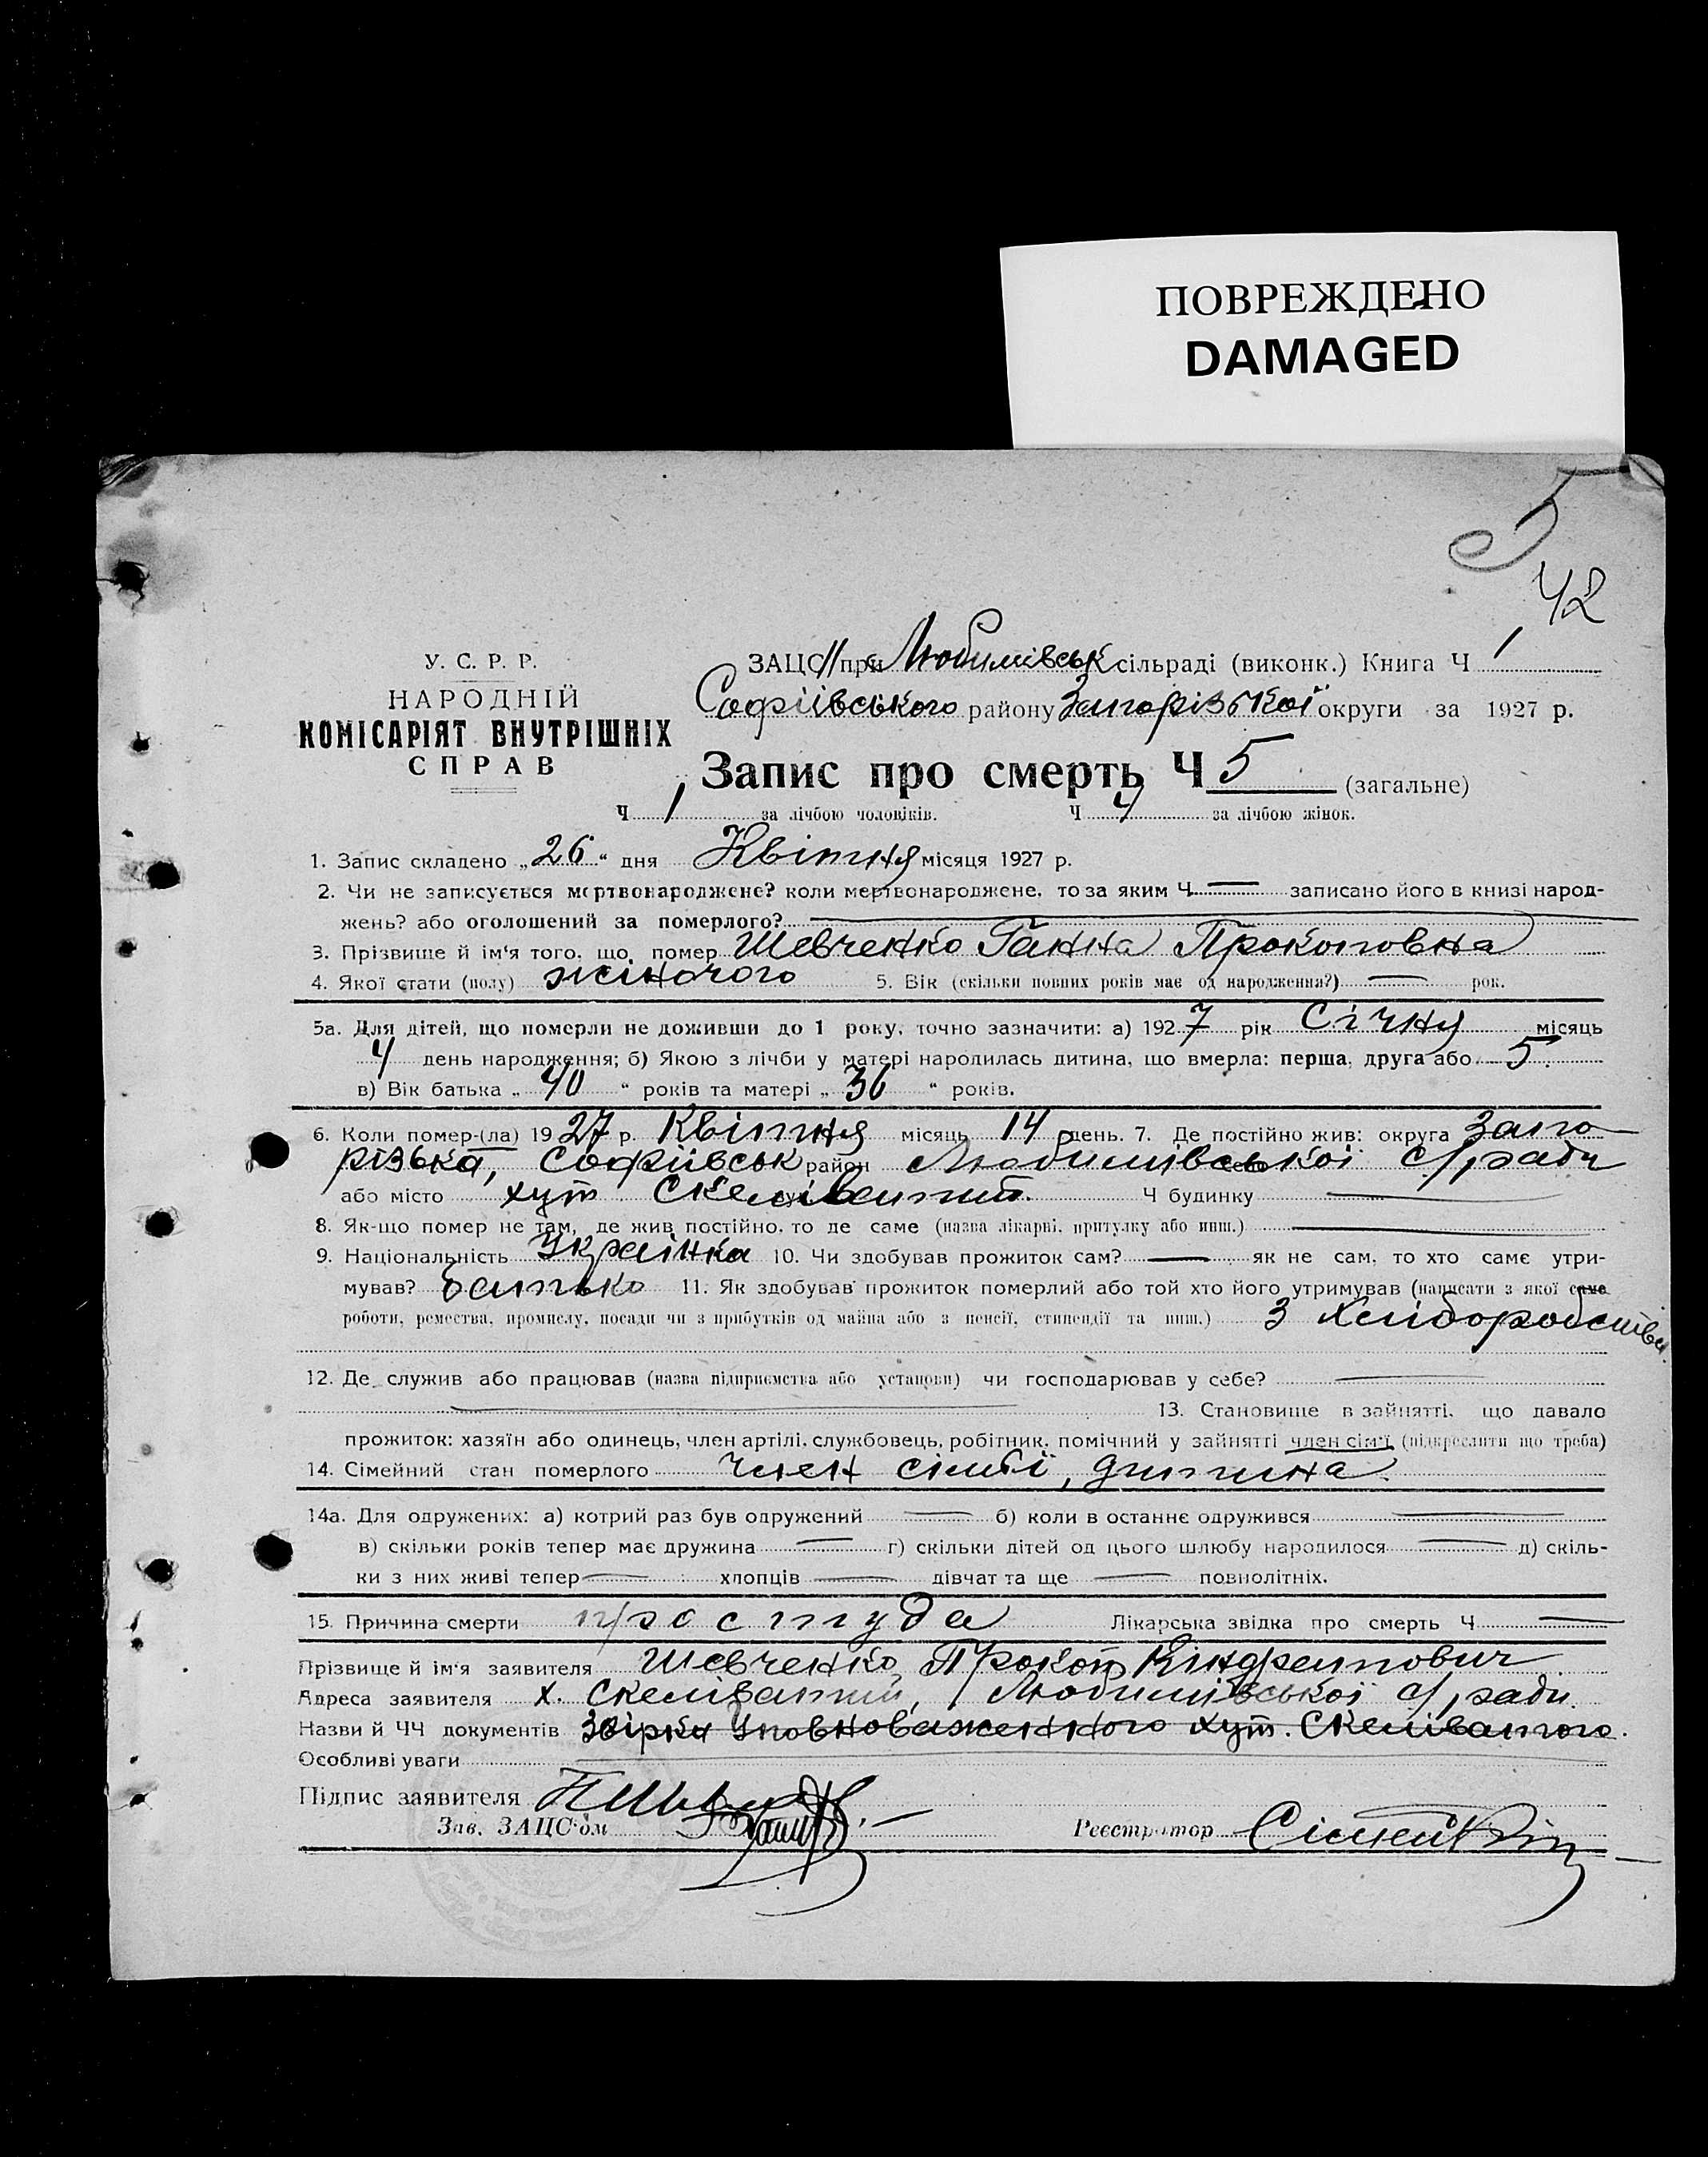 ПОВРЕЖДЕНО
DAMAGED
5
42
У. С. Р. Р.
НАРОДНІЙ
КОМІСАРІЯТ ВНУТРІШНІХ
СПРАВ
ЗАЦС при Любимівськ сільраді (виконк.) Книга Ч 1
Софіївського району Запорізької округи за 1927 р.
Запис про смерть Ч 5 (загальне)
Ч 1 за лічбою чоловіків. Ч 4 за лічбою жінок.
1. Запис складено „26“ дня Квітня місяця 1927 р.
2. Чи не записується мертвонароджене? коли мертвонароджене, то за яким Ч — записано його в книзі народ-
жень? або оголошений за померлого?
3. Прізвище й ім'я того, що помер Шевченко Ганна Прокоповна
4. Якої стати (полу) жіночого 5. Вік (скільки повних років має од народження?) — рок.
5а. Для дітей, що померли не доживши до 1 року, точно зазначити: а) 1927 рік Січня місяць
4 день народження; б) Якою з лічби у матері народилась дитина, що вмерла: перша, друга або 5.
в) Вік батька „40“ років та матері „36“ років.
6. Коли помер-(ла) 1927 р. Квітня місяць 14 день. 7. Де постійно жив: округа Запо
різька, Софіївськ район Любимівської с/ради
або місто хут Скеліватий. Ч будинку —
8. Як-що помер не там, де жив постійно, то де саме (назва лікарні, притулку або инш.) —
9. Національність Українка 10. Чи здобував прожиток сам? — як не сам, то хто саме утри-
мував? батько 11. Як здобував прожиток померлий або той хто його утримував (написати з якої саме
роботи, ремества, промислу, посади чи з прибутків од майна або з пенсії, стипендії та инш.) З хліборобства.
12. Де служив або працював (назва підприємства або установи) чи господарював у себе? —
— 13. Становище в зайнятті, що давало
прожиток: хазяїн або одинець, член артілі, службовець, робітник, помічний у зайнятті член сім'ї (підкреслити що треба)
14. Сімейний стан померлого член сімьї, дитина.
14а. Для одружених: а) котрий раз був одружений — б) коли в останнє одружився —
в) скільки років тепер має дружина — г) скільки дітей од цього шлюбу народилося — д) скіль-
ки з них живі тепер — хлопців — дівчат та ще — повнолітніх.
15. Причина смерти простуда Лікарська звідка про смерть Ч —
Прізвище й ім'я заявителя Шевченко Прокоп Кіндратович
Адреса заявителя х. Скеліватий, Любимівської с/ради.
Назви й ЧЧ документів Звірка Уповноваженного хут. Скеліватого.
Особливі уваги —
Підпис заявителя
Зав. ЗАЦС'ом
Реєстратор